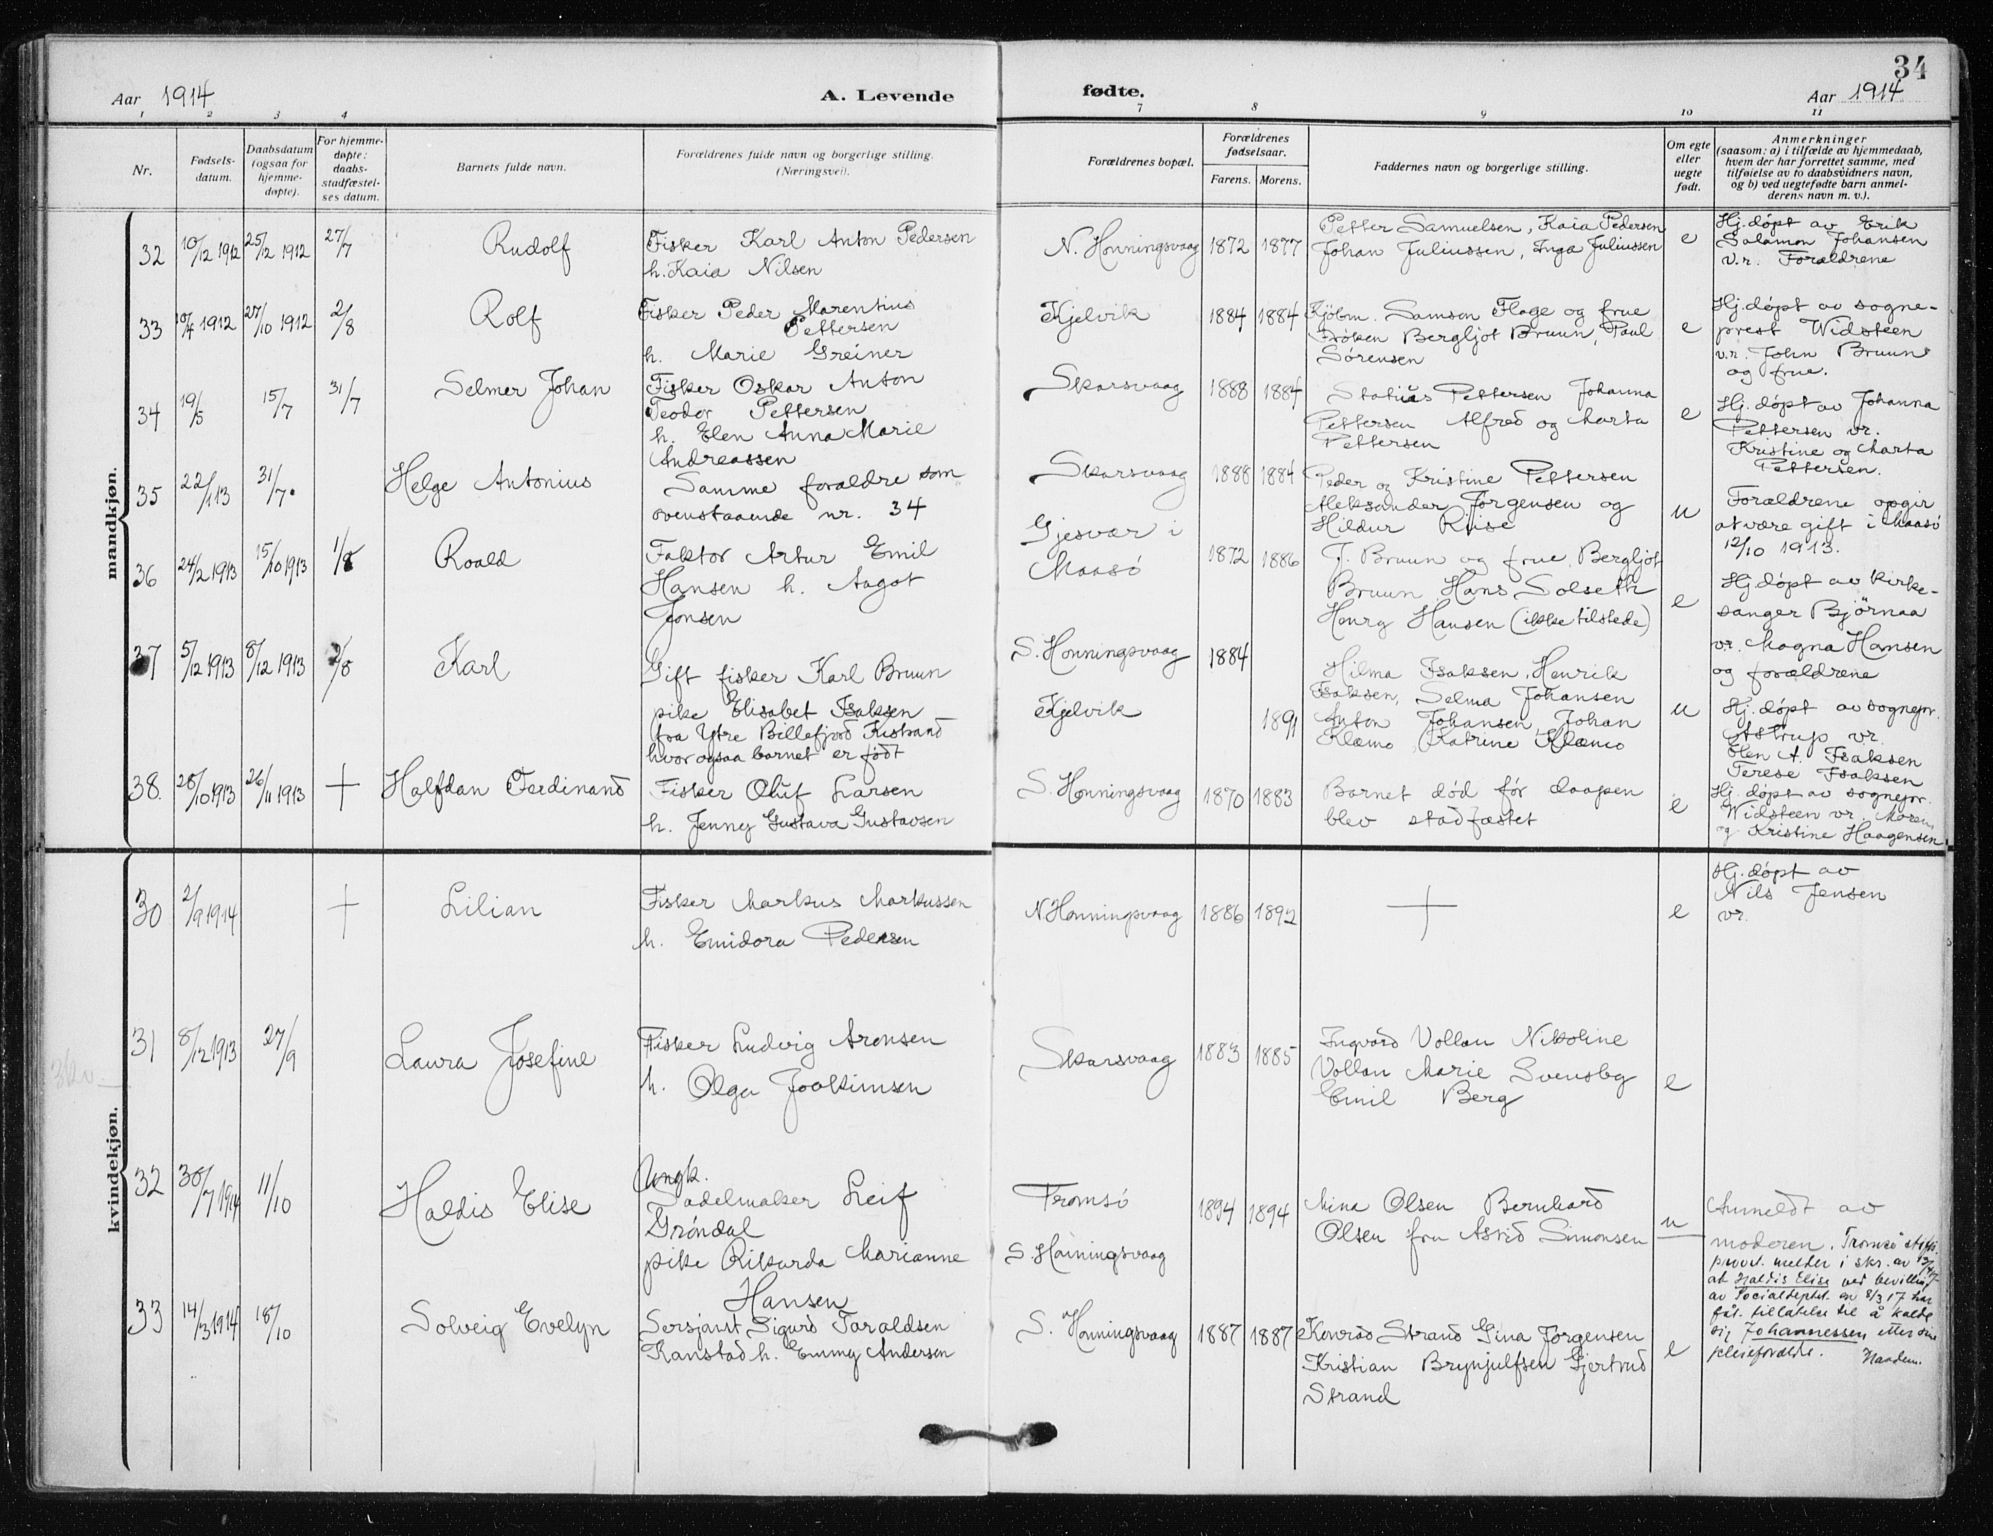 34
Aar 1914
A. Levende
fødte.
Aar 1914
1 2 3 4 7 8 9 10 11
Nr.
Fødsels-
datum.
Daabsdatum
(ogsaa for
hjemme-
døpte).
For hjemme-
døpte:
daabs-
stadfæstel-
ses datum.
Barnets fulde navn.
Forældrenes fulde navn og borgerlige stilling.
(Næringsvei).
Forældrenes bopæl.
Forældrenes
fødselsaar.
Farens. Morens.
Faddernes navn og borgerlige stilling.
Om egte
eller
uegte
født.
Anmerkninger
(saasom: a) i tilfælde av hjemmedaab,
hvem der har forrettet samme, med
tilføielse av to daabsvidners navn,
og b) ved uegtefødte barn anmel-
derens navn m. v.).
mandkjøn.
32 10/12 1912 25/12 1912 27/7 Rudolf
Fisker Karl Anton Pedersen
h. Kaia Nilsen
N. Honningsvaag 1872 1877
Petter Samuelsen, Kaia Pedersen
Johan Juliussen, Inga Juliussen
e
Hj. døpt av Erik
Salamon Johansen
v.r. Forældrene
33 1912 27/10 1912 2/8 Rolf
Fisker Peder Marentius
Pettersen
h. Marie Greiner
Kjelvik 1884 1884
Kjøbm. Samson Flage og frue
Frøken Bergljot Bruun, Paul
Sørensen
e
Hj. døpt av sogne-
prest Widsteen
v.r. John Bruun
og frue.
34 19/5 15/7 31/7 Selmer Johan
Fisker Oskar Anton
Teodor Pettersen
h. Elen Anna Marie
Andreassen
Skarsvaag 1888 1884
Statius Pettersen Johanna
Pettersen Alfred og Marta
Pettersen
e
Hj. døpt av Johanna
Pettersen vr.
Kristine og Marta
Pettersen.
35 22/1 13 31/7. Helge Antonius
Samme forældre som
ovenstaaende nr. 34
Skarsvaag 1888 1884
Peder og Kristine Pettersen
Aleksander Jørgensen og
Hildur Kruse
u
Forældrene opgir
at være gift i Maasø
12/10 1913.
36 24/2 1913 15/10 1913 1/8 Roald
Faktor Artur Emil
Hansen h. Aagot
Jensen
Gjesvær i
Maasø
1872 1886
J. Bruun og frue, Bergljot
Bruun, Hans Solseth
Henry Hansen (ikke tilstede)
e
Hj. døpt av kirke-
sanger Bjørnaa
vr. Magna Hansen
og forældrene
37 5/12 1913 8/12 1913 2/8 Karl
Gift fisker Karl Bruun
pike Elisabet Isaksen
fra Ytre Billefjord Kistrand
hvor ogsaa barnet er født
S. Honningsvaag 1884
Kjelvik 1891
Hilma Isaksen, Henrik
Isaksen, Selma Johansen
Anton Johansen, Johan
Klæmo, Katrine Klæmo
u
Hj. døpt av sognepr.
Astrup vr.
Elen A. Isaksen
Terese Isaksen
38. 25/10 1913 26/11 1913 + Halfdan Ferdinand
Fisker Oluf Larsen
h. Jenny Gustava Gustavsen
S. Honningsvaag 1870 1883
Barnet død før daapen
blev stadfæstet
e
Hj. døpt av sognepr.
Widsteen vr.
og Kristine Haagensen
kvindekjøn.
30 2/9 1914 + Lilian
Fisker Markus Markussen
h. Emidora Pedersen
N Honningsvaag 1886 1892
+
e
Hj. døpt av
Nils Jensen
vr.
31 8/12 1913 27/9 Laura Josefine
Fisker Ludvig Aronsen
h. Olga Joakimsen
Skarsvaag 1883 1885
Ingvard Vollan Nikoline
Vollan Marie Svensby
Emil Berg
e
32 30/7 1914 11/10 Haldis Elise
Ungk.
Sadelmaker Leif
Grøndal
pike Rikarda Marianne
Hansen
Tromsø
S. Honningsvaag
1894 1894
Mina Olsen Bernhard
Olsen fru Astrid Simonsen
u
Anmeldt av
moderen. Tromsø stifts
provst. melder i skr. av
at Haldis Elise ved bevilling
av Socialdeptet. en 8/3 17 har
fåt. tillatelse til å kalde
sig Johannessen efter sine
pleieforældre.
33 14/3 1914 18/10 Solveig Evelyn
Sersjant Sigurd Taraldsen
Ranstad h. Emmy Andersen
S. Honningsvaag 1887 1887
Konrad Strand Gina Jørgensen
Kristian Brynjulfsen Gjertrud
Strand
e